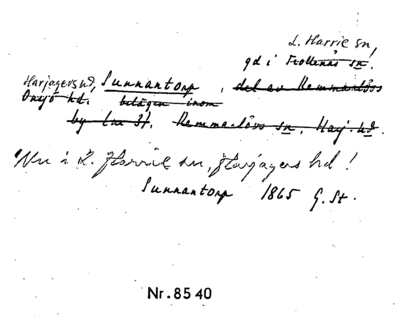 L. Harrie sn,
gd i Trollenäs sn.
Harjagers hd, Sunnantorp, del av Remmarlövs
Onsjö hd. belägen inom
by Lnr 31. Remmarlövs sn. Harj. hd.
Nu i L. Harrie sn, Harjagers hd!
Sunnantorp 1865 G. St.
Nr. 8540